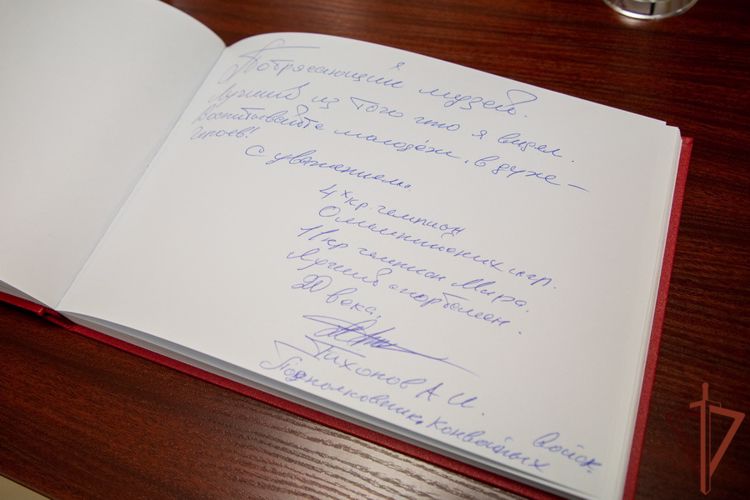 Потрясающий музей.
Лучший из того что я видел.
Воспитывайте молодёж, в духе –
героев!
С уважением.
4х кр чемпион
Олимпийских игр.
11 кр чемпион Мира.
Лучший спортсмен.
20 века.
Тихонов А И.
Подполковник, Конвойных Войск